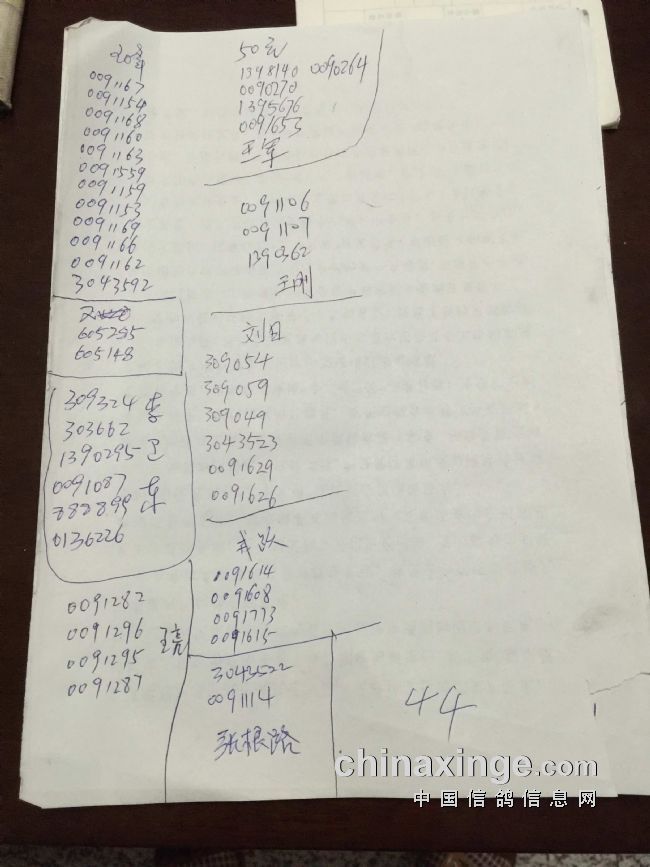 0091167
0091154
0091168
0091160
0091163
0091559
0091159
0091153
0091169
0091166
0091162
3043592
605295
605148
309324 李
303662
1390295 卫
0091087 东
782899
0136226
0091282
0091296 王亮
0091295
0091287
50元
1398140 0090264
0090270
1395676
0091653
王军
0091106
0091107
1390362
王刚
刘日
309054
309059
309049
3043523
0091629
0091626
0091614
0091608
0091773
0091615
3043522
0091114
张根路
44
chinaxinge.com
中国信鸽信息网